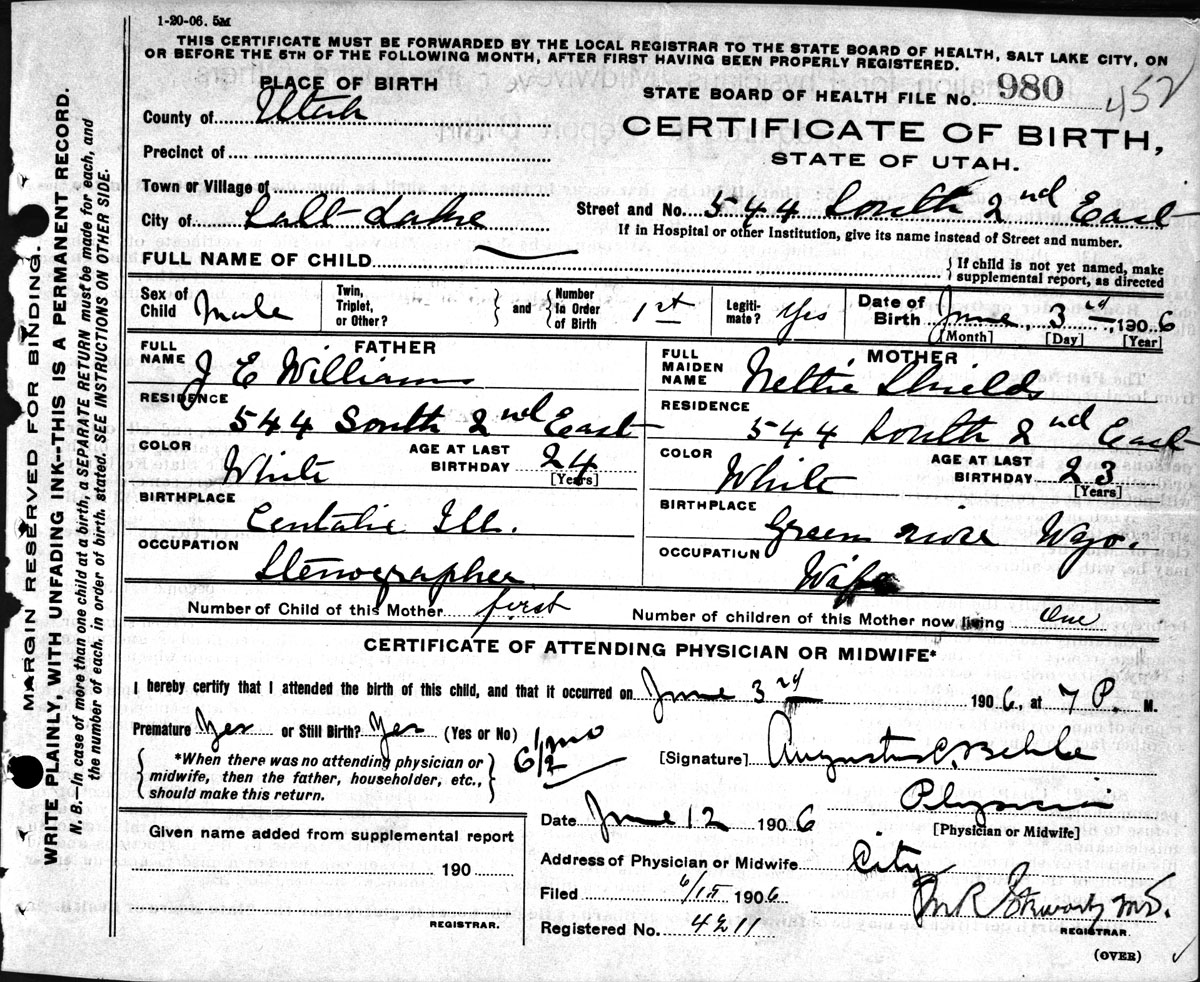 1-20-06. 5M
THIS CERTIFICATE MUST BE FORWARDED BY THE LOCAL REGISTRAR TO THE STATE BOARD OF HEALTH, SALT LAKE CITY, ON
OR BEFORE THE 5TH OF THE FOLLOWING MONTH, AFTER FIRST HAVING BEEN PROPERLY REGISTERED.
MARGIN RESERVED FOR BINDING.
WRITE PLAINLY, WITH UNFADING INK--THIS IS A PERMANENT RECORD.
N. B.—In case of more than one child at a birth, a SEPARATE RETURN must be made for each, and
the number of each, in order of birth, stated. SEE INSTRUCTIONS ON OTHER SIDE.
PLACE OF BIRTH
STATE BOARD OF HEALTH FILE NO. 980 452
County of Utah
CERTIFICATE OF BIRTH,
STATE OF UTAH.
Precinct of
Town or Village of
City of Salt Lake
Street and No. 544 South 2nd East
If in Hospital or other Institution, give its name instead of Street and number.
FULL NAME OF CHILD { If child is not yet named, make supplemental report, as directed
Sex of Child Male Twin, Triplet, or Other? } and { Number in Order of Birth 1st Legitimate? Yes Date of Birth June, 3rd, 1906
[Month] [Day] [Year]
FATHER
FULL NAME J E Williams
RESIDENCE
544 South 2nd East
COLOR White AGE AT LAST BIRTHDAY 24
[Years]
BIRTHPLACE
Ill.
OCCUPATION
Stenographer
MOTHER
FULL MAIDEN NAME Nettie Shields
RESIDENCE
544 South 2nd East
COLOR White AGE AT LAST BIRTHDAY 23
[Years]
BIRTHPLACE
Green River Wyo.
OCCUPATION
Wife
Number of Child of this Mother first Number of children of this Mother now living One
CERTIFICATE OF ATTENDING PHYSICIAN OR MIDWIFE*
I hereby certify that I attended the birth of this child, and that it occurred on June 3rd 1906, at 7 P. M.
Premature Yes or Still Birth? Yes (Yes or No) 6 1/2 mo
{ *When there was no attending physician or
midwife, then the father, householder, etc.,
should make this return. }
[Signature] Augustus C. Behle
Physician
[Physician or Midwife]
Date June 12 1906
Given name added from supplemental report
190
REGISTRAR.
Address of Physician or Midwife City
Filed 6/15 1906
M.D.
REGISTRAR.
Registered No. 4211
(OVER)